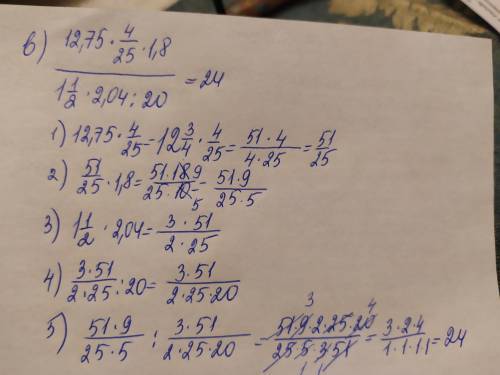 в) 12,75 · 4/25 · 1,8
1 1/2 · 2,04 : 20 = 24
1) 12,75 · 4/25 = 12 3/4 · 4/25 = 51 · 4 / 4 · 25 = 51/25
2) 51/25 · 1,8 = 51 · 18 9 / 25 · 10 5 = 51 · 9 / 25 · 5
3) 1 1/2 · 2,04 = 3 · 51 / 2 · 25
4) 3 · 51 / 2 · 25 : 20 = 3 · 51 / 2 · 25 · 20
5) 51 · 9 / 25 · 5 : 3 · 51 / 2 · 25 · 20 = 51 · 9 3 · 2 · 25 · 20 4 / 25 · 5 · 3 · 51 1 1 = 3 · 2 · 4 / 1 · 1 · 1 = 24